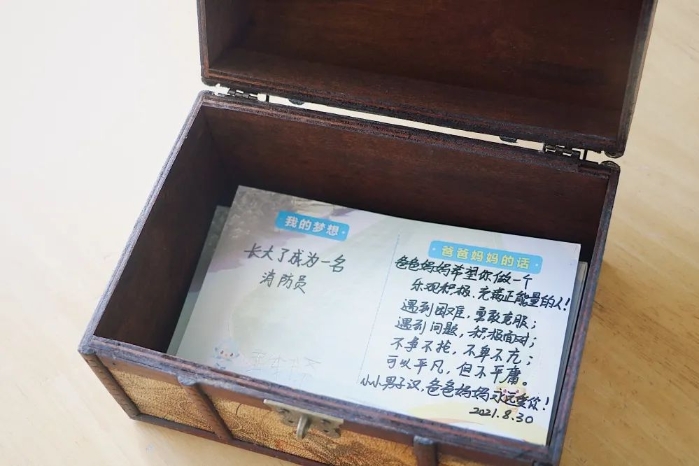 我的梦想
长大了成为一名
消防员
爸爸妈妈的话
爸爸妈妈希望你做一个
乐观积极、充满正能量的人!
遇到困难，勇敢克服；
遇到问题，积极面对；
不争不抢，不卑不亢；
可以平凡，但不平庸。
小小男子汉，爸爸妈妈永远爱你!
2021.8.30